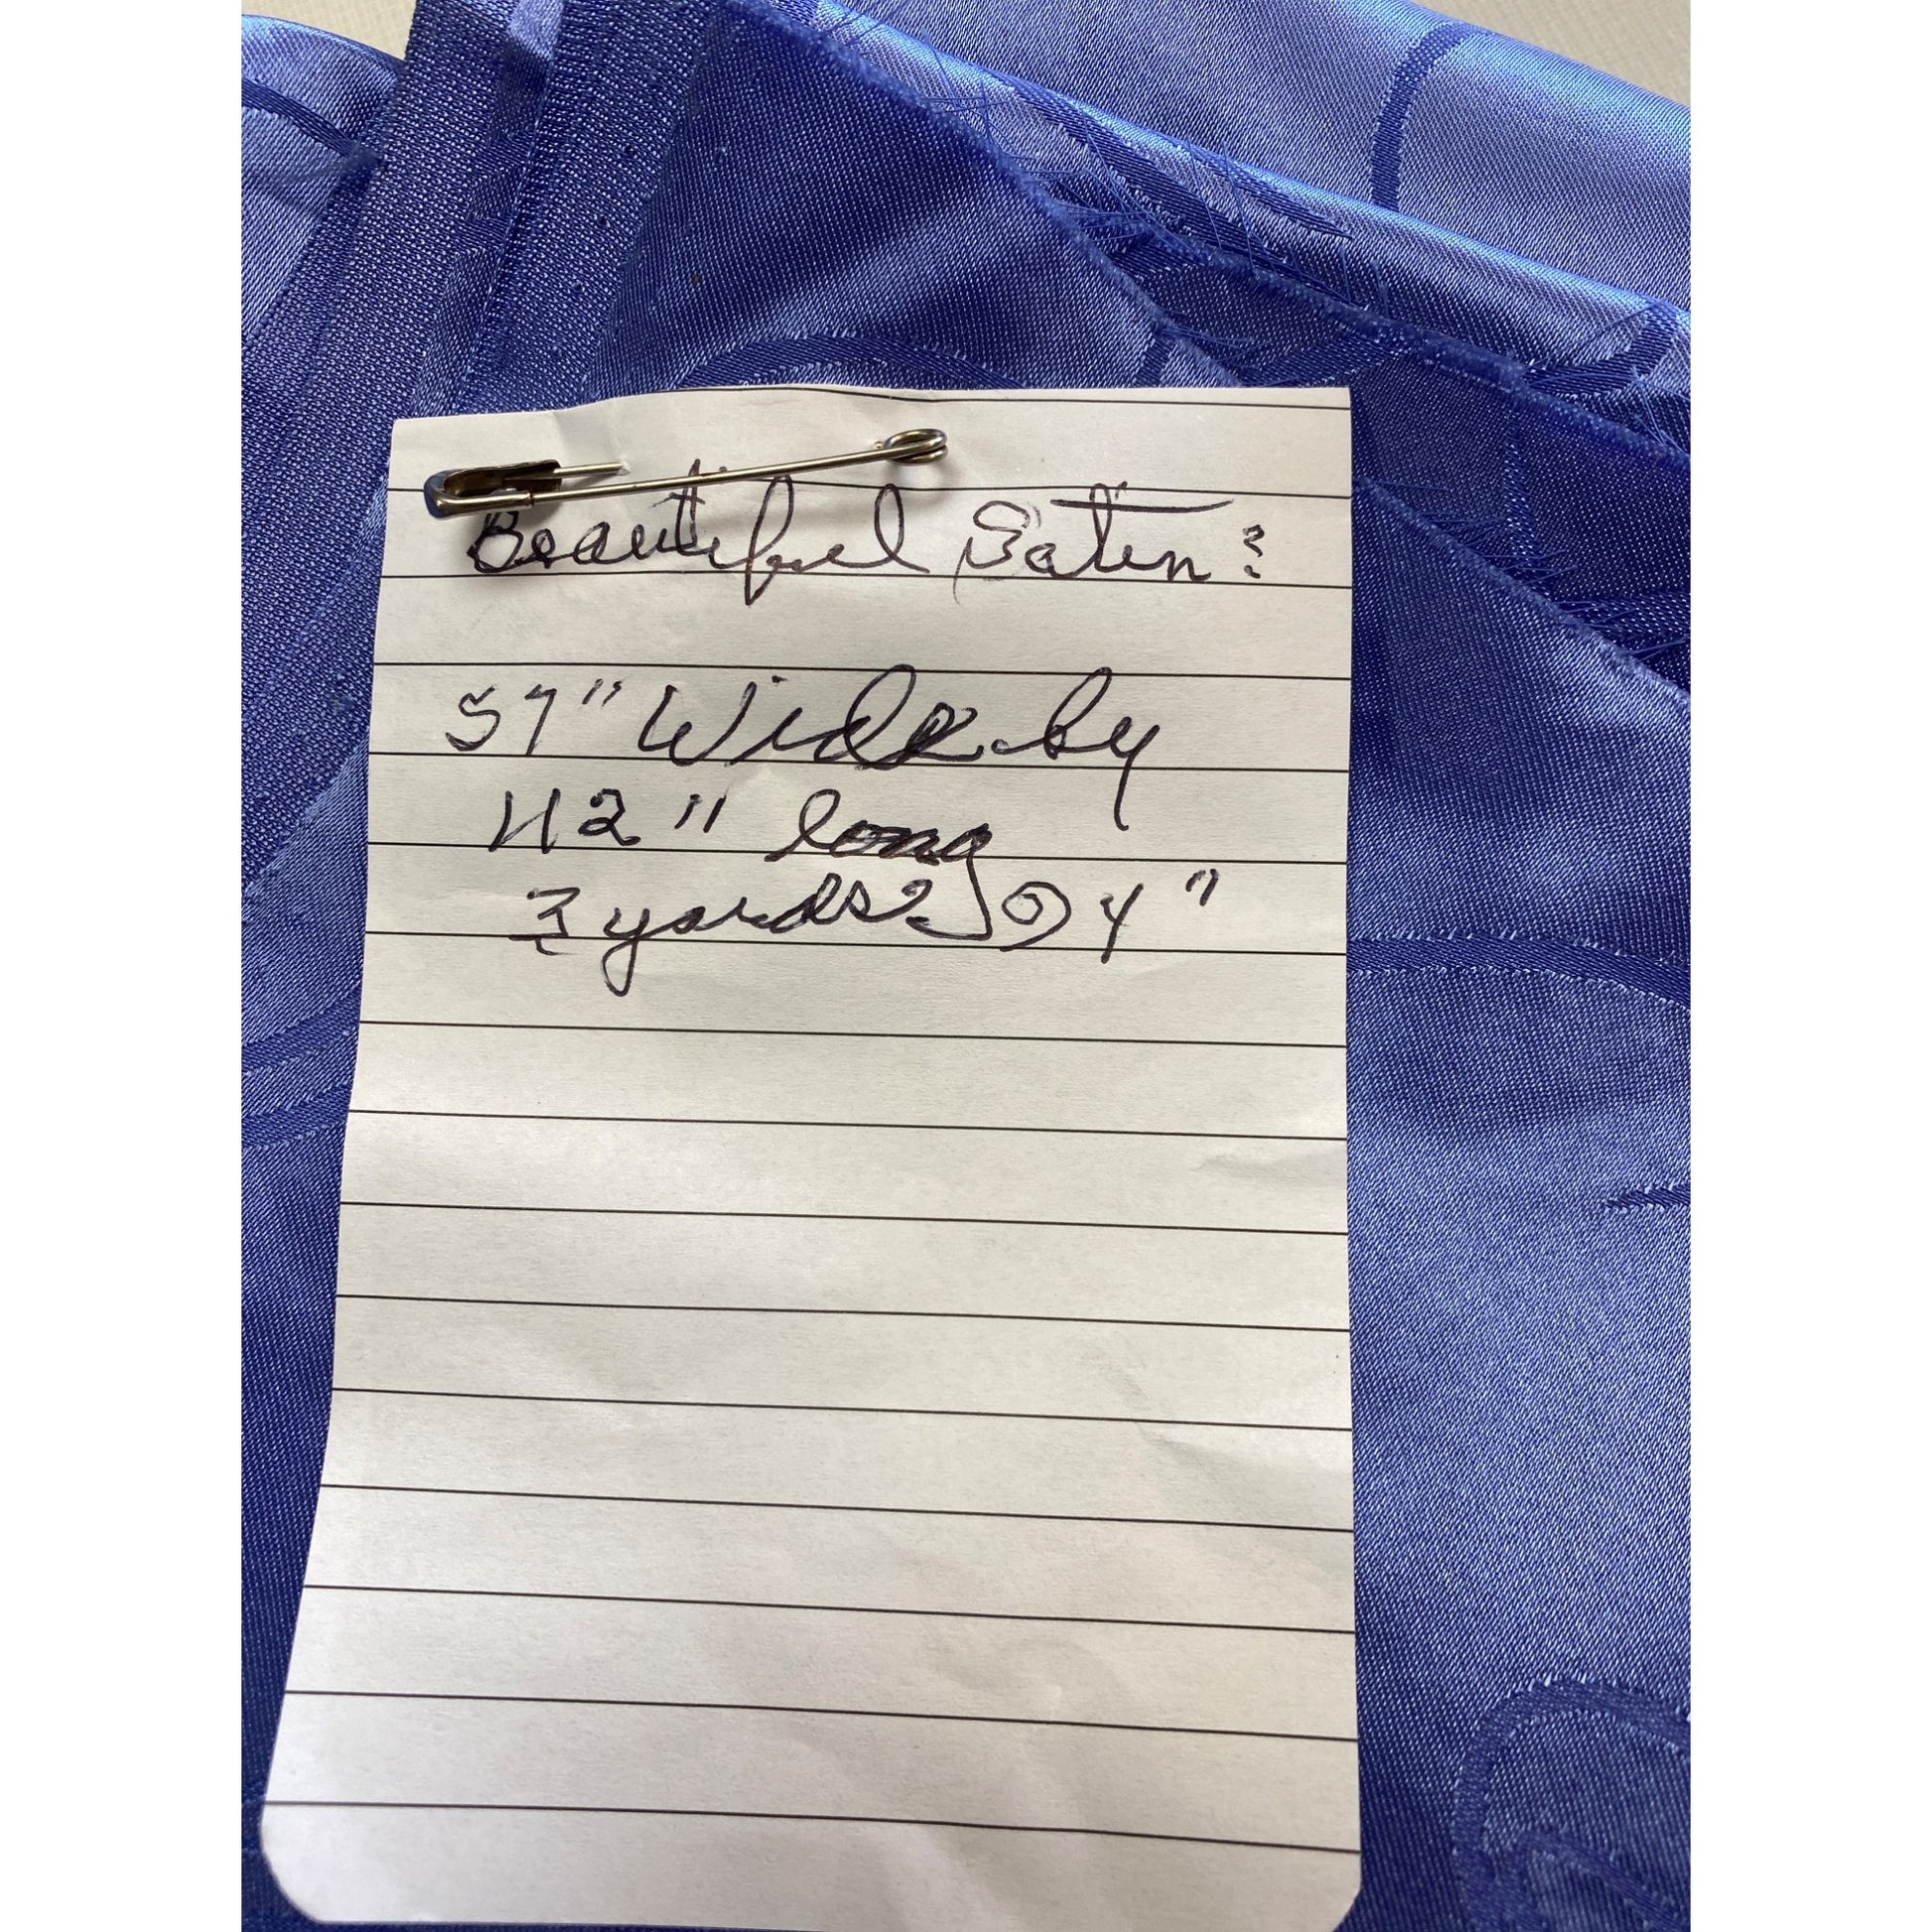 Beautiful Satin?
57" Wide by
112" long
3 yards 4"